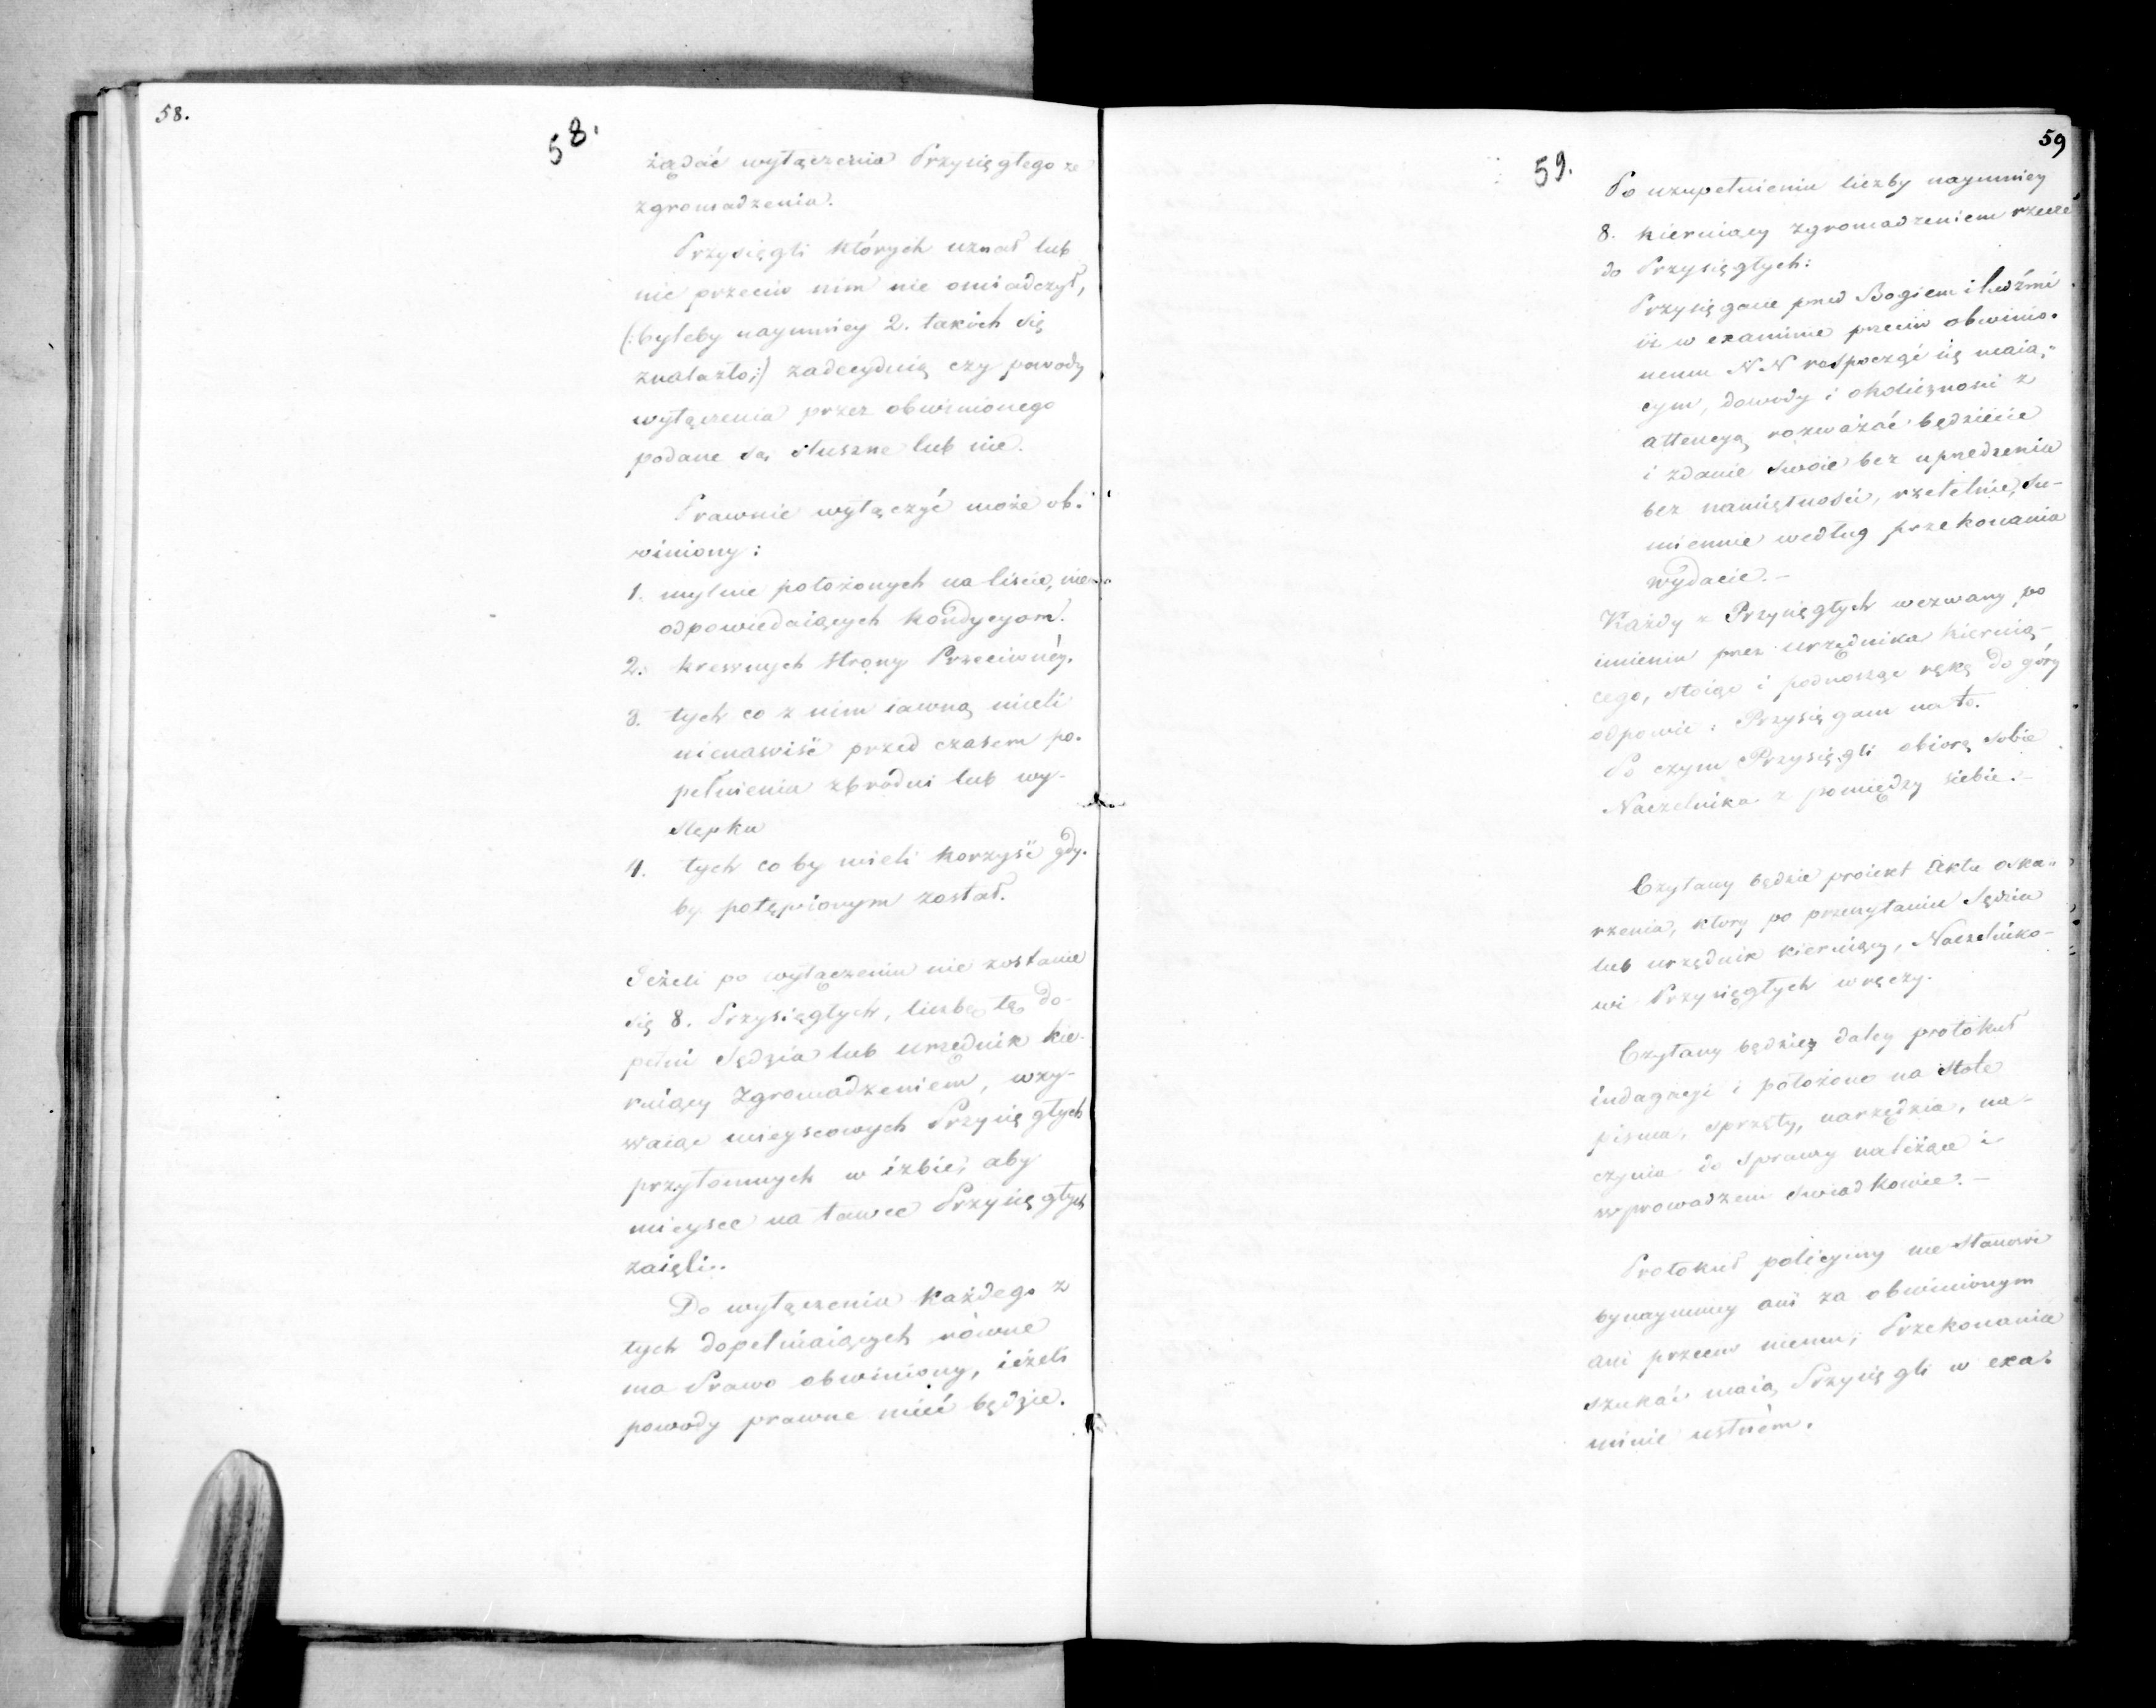 58.
58.
żądać wyłączenia Przysięgłego ze
zgromadzenia.
Przysięgli których uznał lub
nic przeciw nim nie oświadczył,
(:byleby naymniey 2. takich się
znalazło;:) zadecyduią czy powody
wyłączenia przez obwinionego
podane są słuszne lub nie.
Prawnie wyłączyć może ob-
winiony:
1. mylnie położonych na liscie, nie
odpowiedaiących kondycyom.
2. krewnych strony Przeciwnéy.
3. tych co z nim iawną mieli
nienawiść przed czasem po-
pełnienia zbrodni lub wy-
stępku
4. tych co by mieli korzyść gdy-
by potępionym został.
Jeżeli po wyłączeniu nie zostanie
się 8. Przysięgłych, liczbę tę do-
pełni Sędzia lub urzędnik kie-
ruiący Zgromadzeniem, wzy-
waiąc mieyscowych Przysięgłych
przytomnych w izbie, aby
mieysce na ławce Przysięgłych
zaięli.
Do wyłączenia każdego z
tych dopełniaiących równe
ma Prawo obwiniony, ieżeli
powody prawne mieć będzie.
59
59.
Po uzupełnieniu liczby naymniey
8. kieruiący zgromadzeniem rzecze
do Przysięgłych:
Przysięgacie przed Bogiem i ludźmi
iż w examinie przeciw obwinio-
nemu N.N rospocząć się maią-
cym, dowody i okoliczności z
attencyą rozważać będziecie
i zdanie swoie bez uprzedzenia
bez namiętności, rzetelnie, su-
miennie według przekonania
wydacie.-
Każdy z Przysięgłych wezwany po
imieniu przez urzędnika kieruią-
cego, stoiąc i podnosząc rękę do góry
odpowie: Przysięgam na to.
Po czym Przysięgli obiorą sobie
Naczelnika z pomiędzy siebie.-
Czytany będzie proiekt Aktu oska-
rzenia, ktory po przeczytaniu Sędzia
lub urzędnik kieruiący, Naczelniko-
wi Przysięgłych wręczy.
Czytany będzie daley protokuł
indagacyi i położone na stole
pisma, sprzęty, narzędzia, na-
czynia do sprawy należące i
wprowadzeni swiadkowie.-
Protokuł policyiny nie stanowi
bynaymniey ani za obwinionym
ani przeciw niemu; Przekonania
szukać maią Przysięgli w exa-
minie ustném.